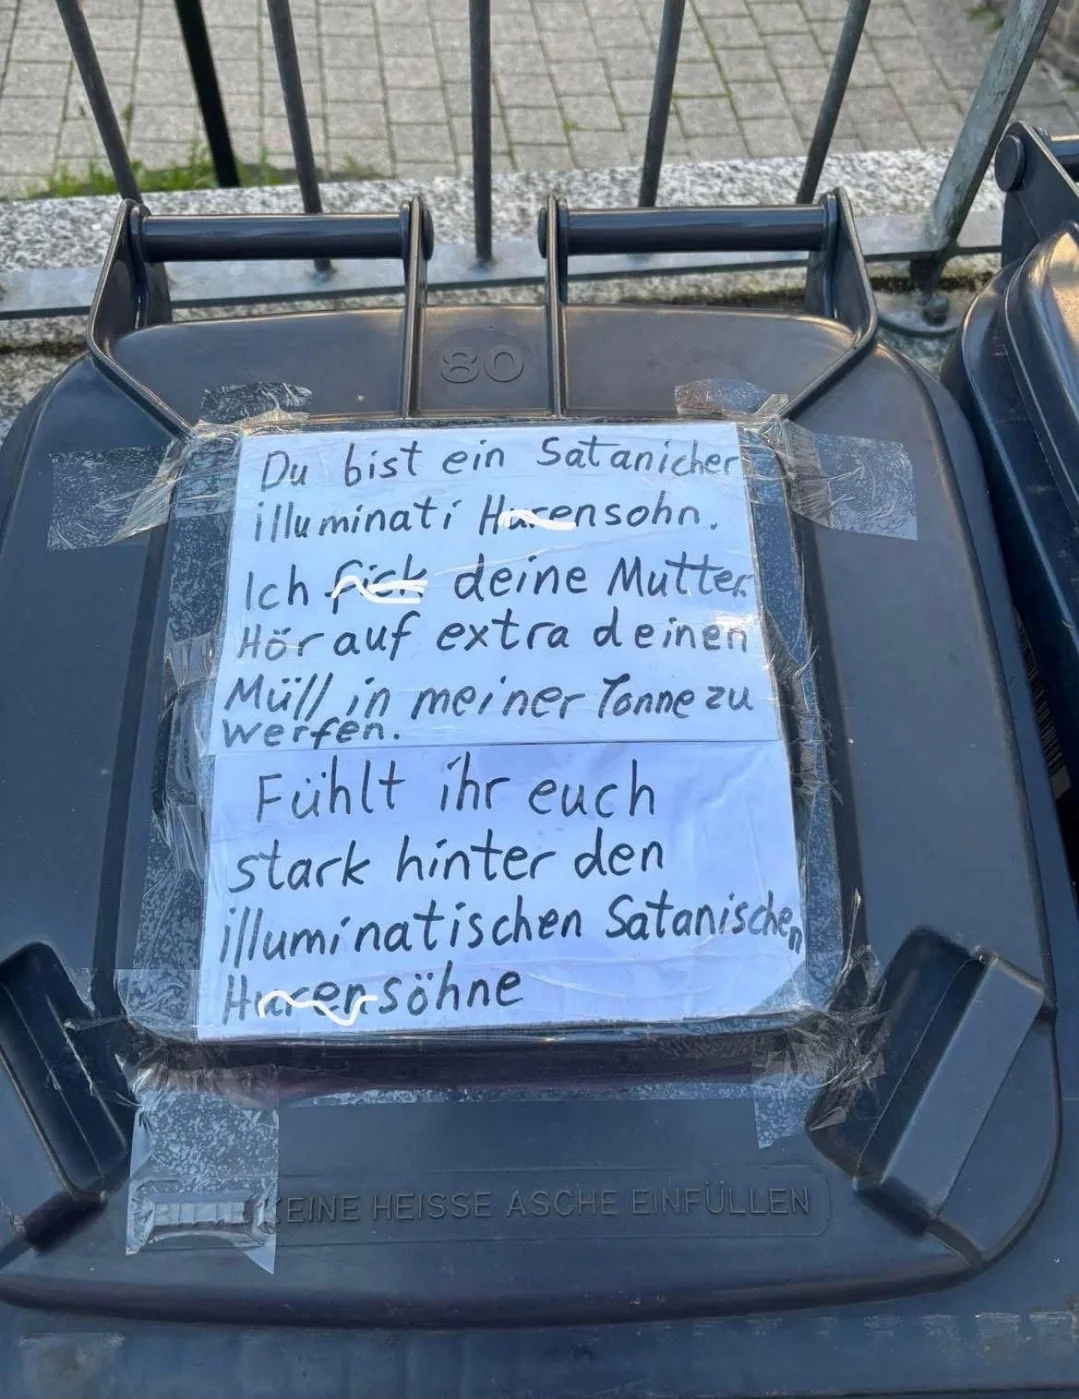 80
Du bist ein Satanicher
illuminati Hurensohn.
Ich fick deine Mutter.
Hör auf extra deinen
Müll in meiner Tonne zu
werfen.
Fühlt ihr euch
stark hinter den
illuminatischen Satanischen
Hurensöhne
BITTE KEINE HEISSE ASCHE EINFÜLLEN